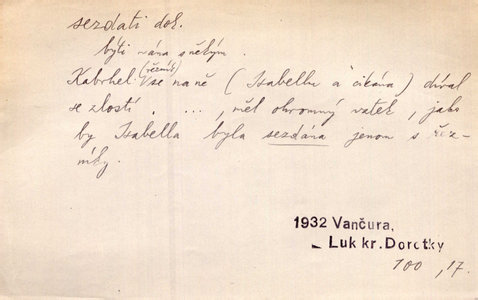 sezdati dok.
býti sňána s někým.
Kabrhel (řezník) se na ně (Isabellu a cikána) díval
se zlostí. ..., měl ohromný vztek, jako
by Isabella byla sezdána jenom s řez-
níky.
1932 Vančura,
Luk kr. Dorotky
100, 17.